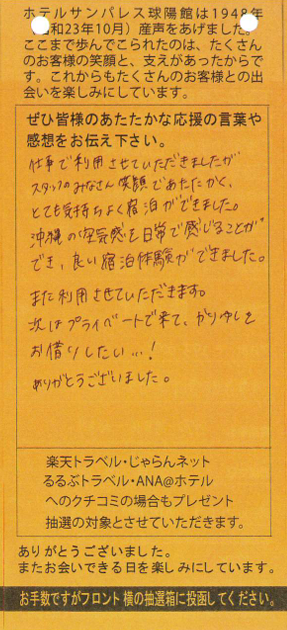 ホテルサンパレス球陽館は1948年
昭和23年10月）産声をあげました。
ここまで歩んでこられたのは、たくさん
のお客様の笑顔と、支えがあったからで
す。これからもたくさんのお客様との出
会いを楽しみにしています。
ぜひ皆様のあたたかな応援の言葉や
感想をお伝え下さい。
仕事で利用させていただきましたが
スタッフのみなさん笑顔であたたかく、
とても気持ちよく宿泊ができました。
沖縄の空気感を日常で感じることが
でき、良い宿泊体験ができました。
また利用させていただきます。
次はプライベートで来て、かりゆしを
お借りしたい…！
ありがとうございました。
楽天トラベル・じゃらんネット
るるぶトラベル・ANA@ホテル
へのクチコミの場合もプレゼント
抽選の対象とさせていただきます。
ありがとうございました。
またお会いできる日を楽しみにしています。
お手数ですがフロント横の抽選箱に投函してください。